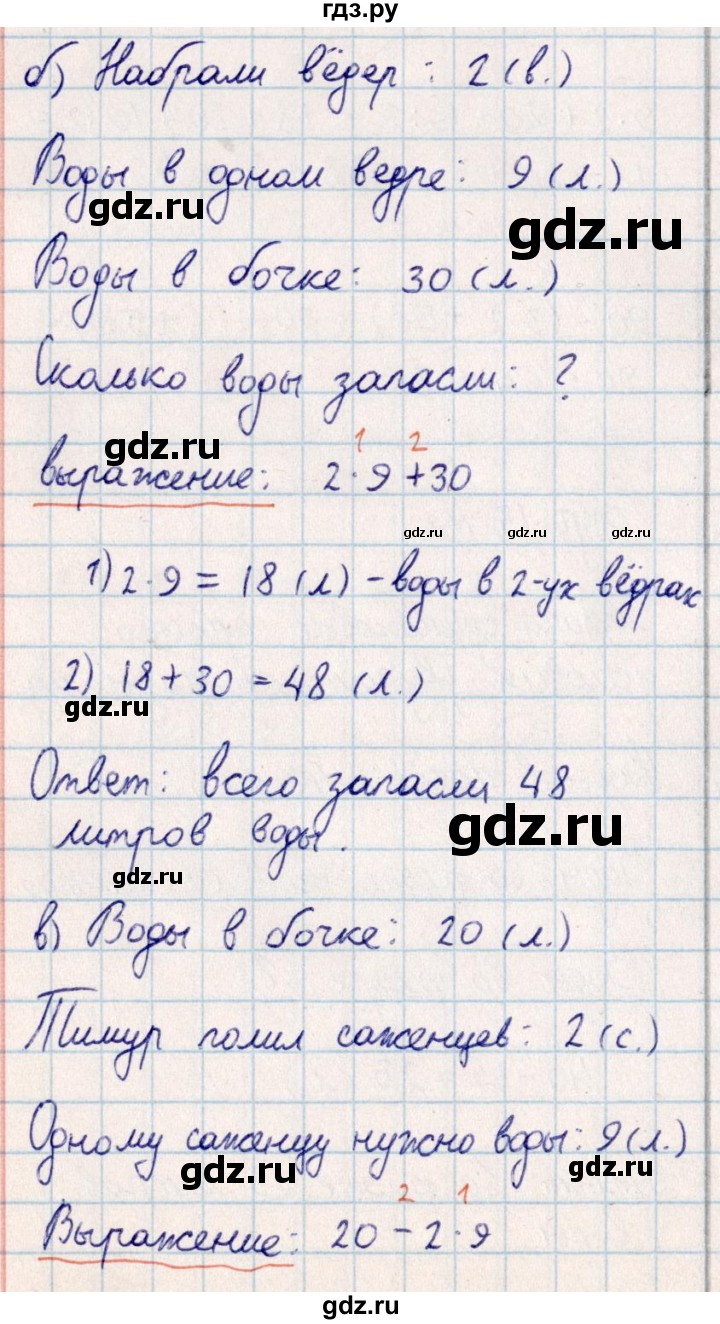 гдз.ру
б) Набрали вёдер: 2 (в.)
Воды в одном ведре: 9 (л.)
gdz.ru
gdz.ru
Воды в бочке: 30 (л.)
Сколько воды запасли: ?
gdz.ru
1 2
выражение: 2·9+30
gdz.ru gdz.ru gdz.ru
1) 2·9 = 18 (л) - воды в 2-ух вёдрах
2) 18 + 30 = 48 (л.)
gdz.ru
Ответ: всего запасли 48
литров воды.
gdz.ru
gdz.ru
в) Воды в бочке: 20 (л.)
Тимур полил саженцев: 2 (с.)
Одному саженцу нужно воды: 9 (л.)
gdz.ru
gdz.ru
2 1
Выражение: 20 - 2·9
gdz.ru